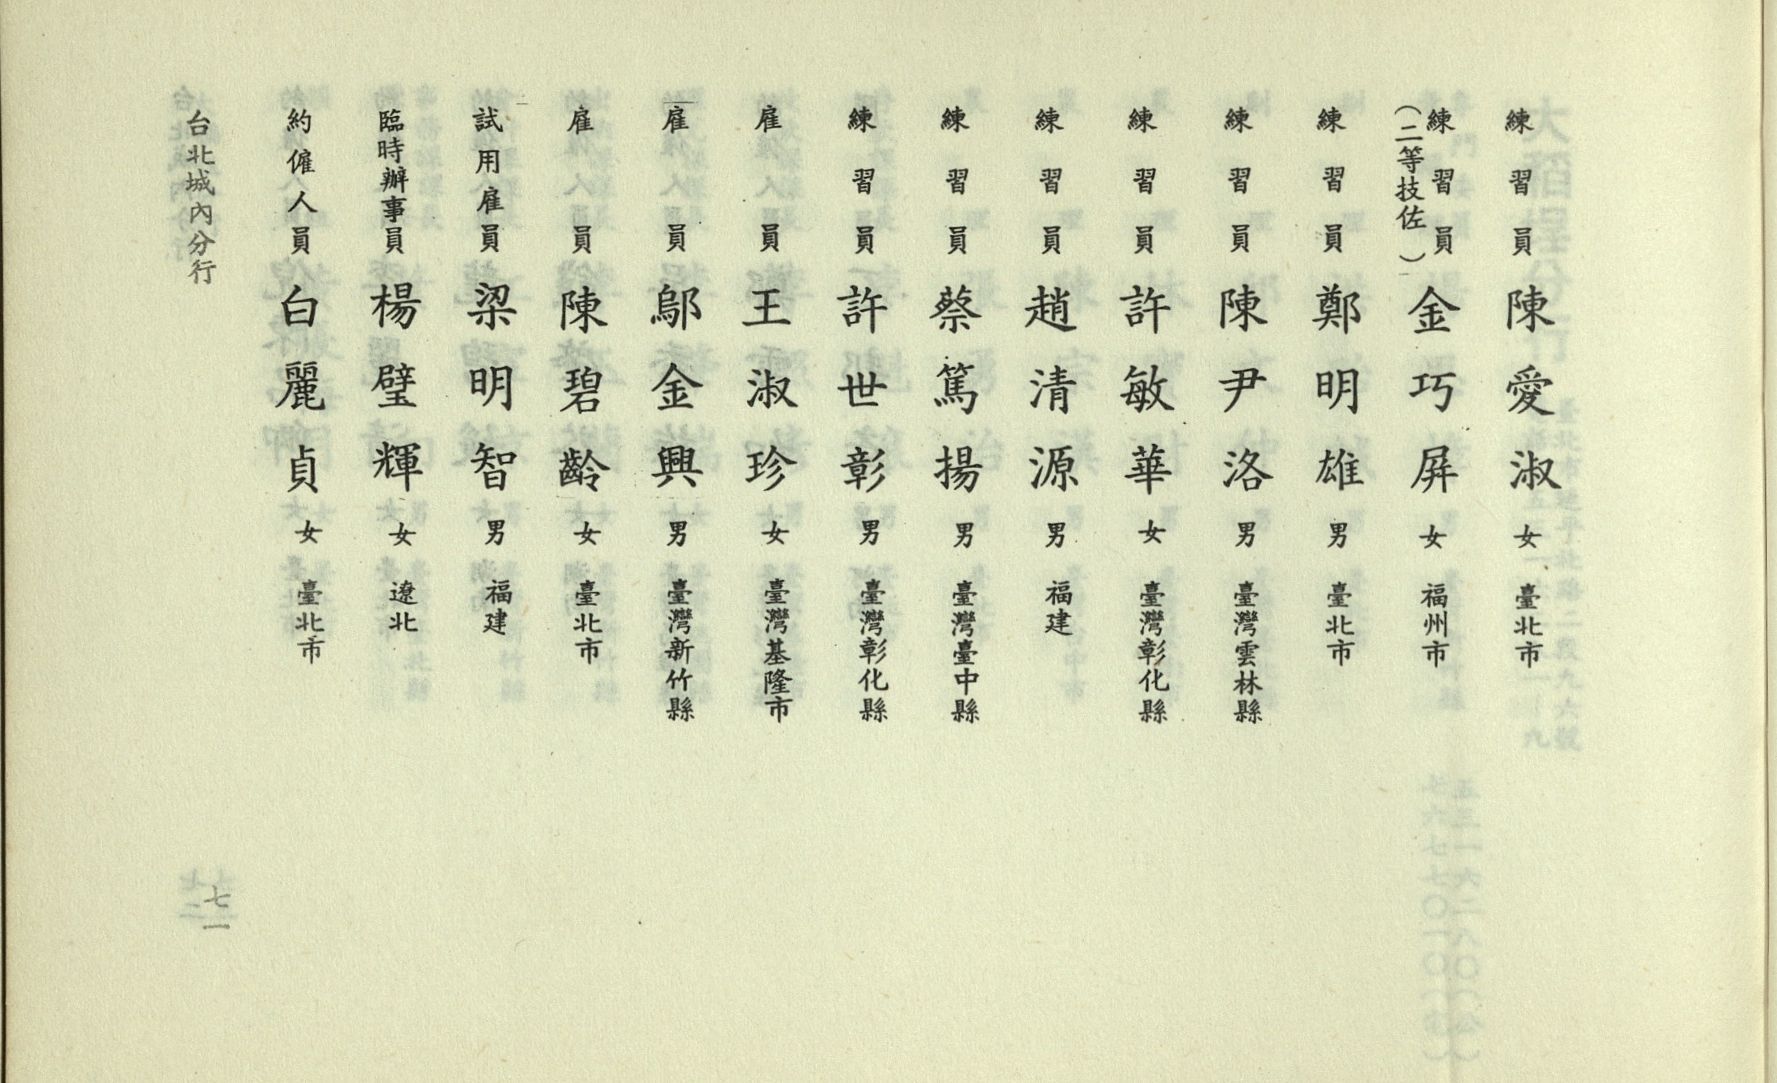 練習員 陳愛淑 女 臺北市
練習員(二等技佐) 金巧屏 女 福州市
練習員 鄭明雄 男 臺北市
練習員 陳尹洛 男 臺灣雲林縣
練習員 許敏華 女 臺灣彰化縣
練習員 趙清源 男 福建
練習員 蔡篤揚 男 臺灣臺中縣
練習員 許世彰 男 臺灣彰化縣
雇員 王淑珍 女 臺灣基隆市
雇員 鄔金興 男 臺灣新竹縣
雇員 陳碧齡 女 臺北市
試用雇員 梁明智 男 福建
臨時辦事員 楊璧輝 女 遼北
約僱人員 白麗貞 女 臺北市
台北城內分行
七一